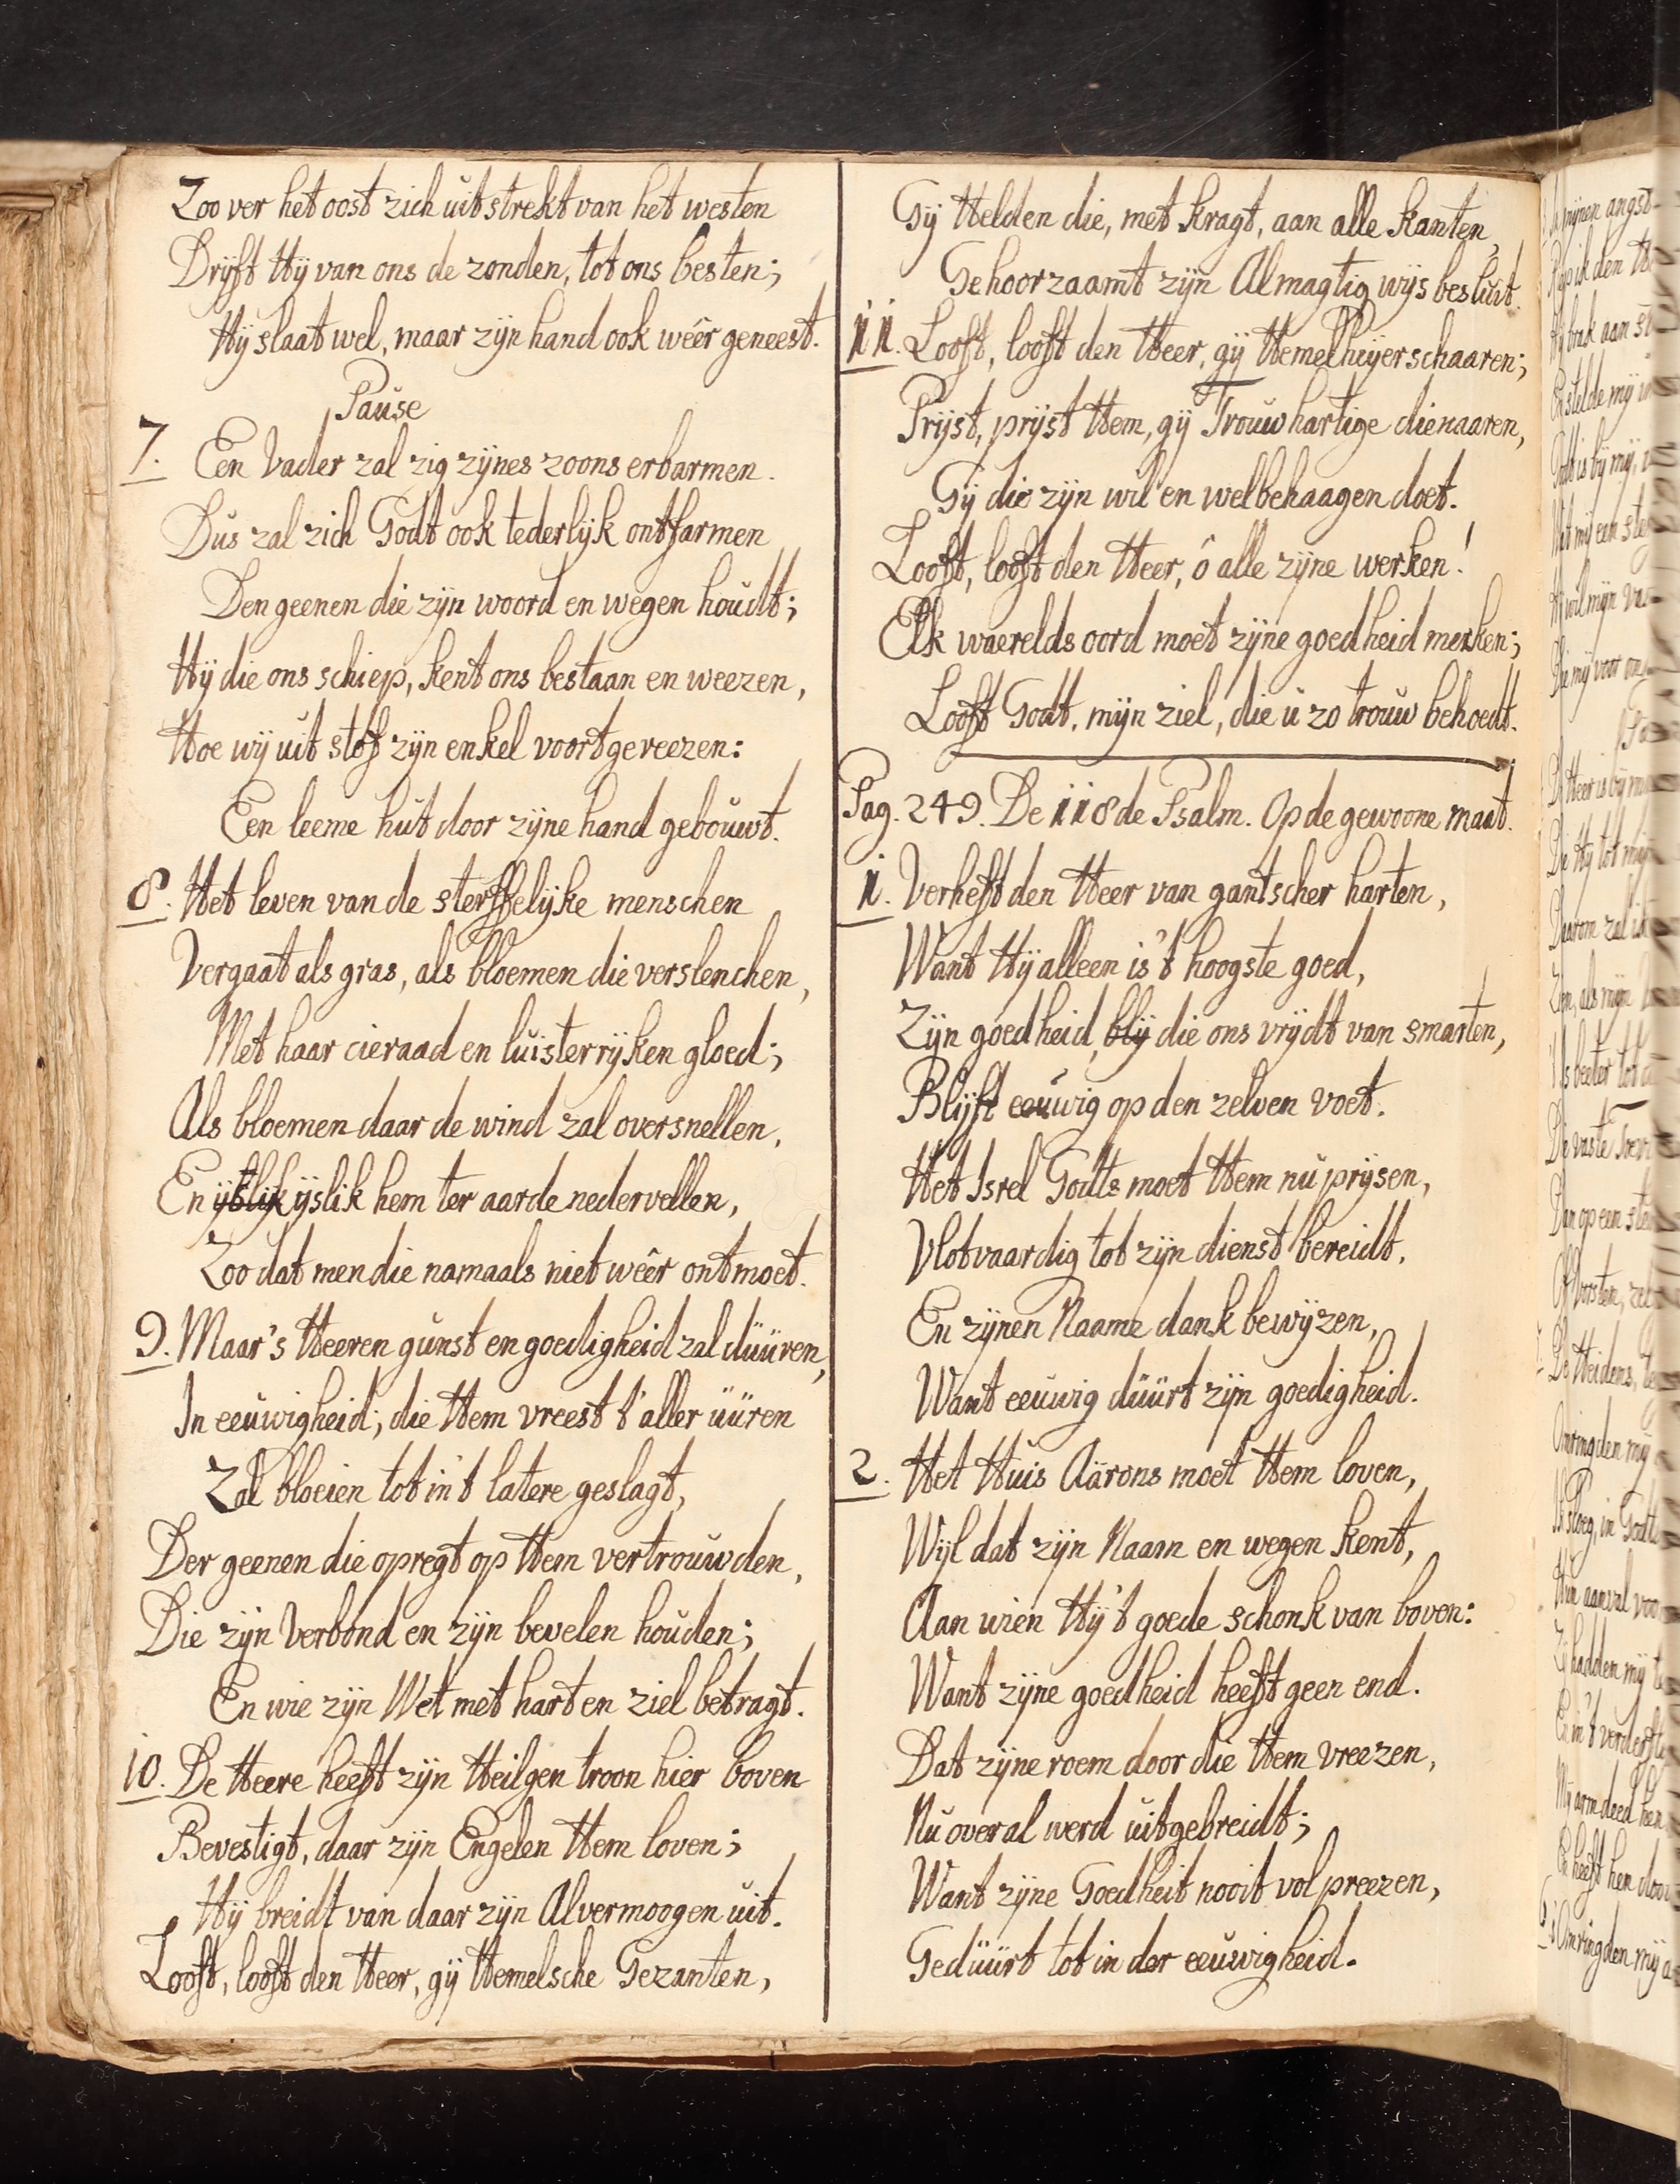 Zoo ver het oost zich uitstrekt van het westen
Drijft Hij van ons de zonden, tot ons besten;
Hij slaat wel, maar zijn hand ook wêêr geneest.
Pause
7. Een Vader zal zig zijnes zoons erbarmen.
Dus zal zich Godt ook tederlijk ontfarmen
Den geenen die zijn woord en wegen houdt;
Hij die ons schiep, kent ons bestaan en weezen,
Hoe wij uit stof zijn enkel voortgereezen:
Een leeme hut door zijne hand gebouwt.
8. Het leven van de sterffelijke menschen
Vergaat als gras, als bloemen die verslenchen,
Met haar cieraad en luisterrijken gloed;
Als bloemen daar de wind zal oversnellen,
En ijslik hem ter aarde nedervellen,
Zoo dat men die namaals niet wêêr ontmoet.
9. Maar 's Heeren gunst en goedigheid zal düüren,
In eeuwigheid; die Hem vreest t' aller üüren
Zal bloeien tot in 't latere geslagt,
Der geenen die opregt op Hem vertrouwden,
Die zijn Verbond en zijn bevelen houden;
En wie zijn Wet met hart en ziel betragt.
10. De Heere heeft zijn Heilgen troon hier boven
Bevestigt, daar zijn Engelen Hem loven;
Hij breidt van daar zijn Alvermoogen uit.
Looft, looft den Heer, gij Hemelsche Gezanten,
Gij Helden die, met kragt, aan alle kanten,
Gehoorzaamt zijn Almagtig wijs besluit.
11. Looft, looft den Heer, gij Hemelheijerschaaren;
Prijst, prijst Hem, gij Trouwhartige dienaaren,
Gij die zijn wil en welbehaagen doet.
Looft, looft den Heer, ô alle zijne werken!
Elk waerelds oord moet zijne goedheid merken;
Looft Godt, mijn ziel, die u zo trouw behoedt.
Pag. 249. De 118de Psalm. Op de gewoone maat.
1. Verheft den Heer van gantscher harten,
Want Hij alleen is 't hoogste goed,
Zijn goedheid, blij die ons vrijdt van smarten,
Blijft eeuwig op den zelven voet.
Het Isrel Godts moet Hem nu prijsen,
Vlotvaardig tot zijn dienst bereidt,
En zijnen Naame dank bewijzen,
Want eeuwig düürt zijn goedigheid.
2. Het Huis Aärons moet Hem loven,
Wijl dat zijn Naam en wegen kent,
Aan wien Hij 't goede schonk van boven:
Want zijne goedheid heeft geen end.
Dat zijne roem door die Hem vreezen,
Nu overal werd uitgebreidt;
Want zijne Goedheit nooit volpreezen,
Gedüürt tot in der eeuwigheid.